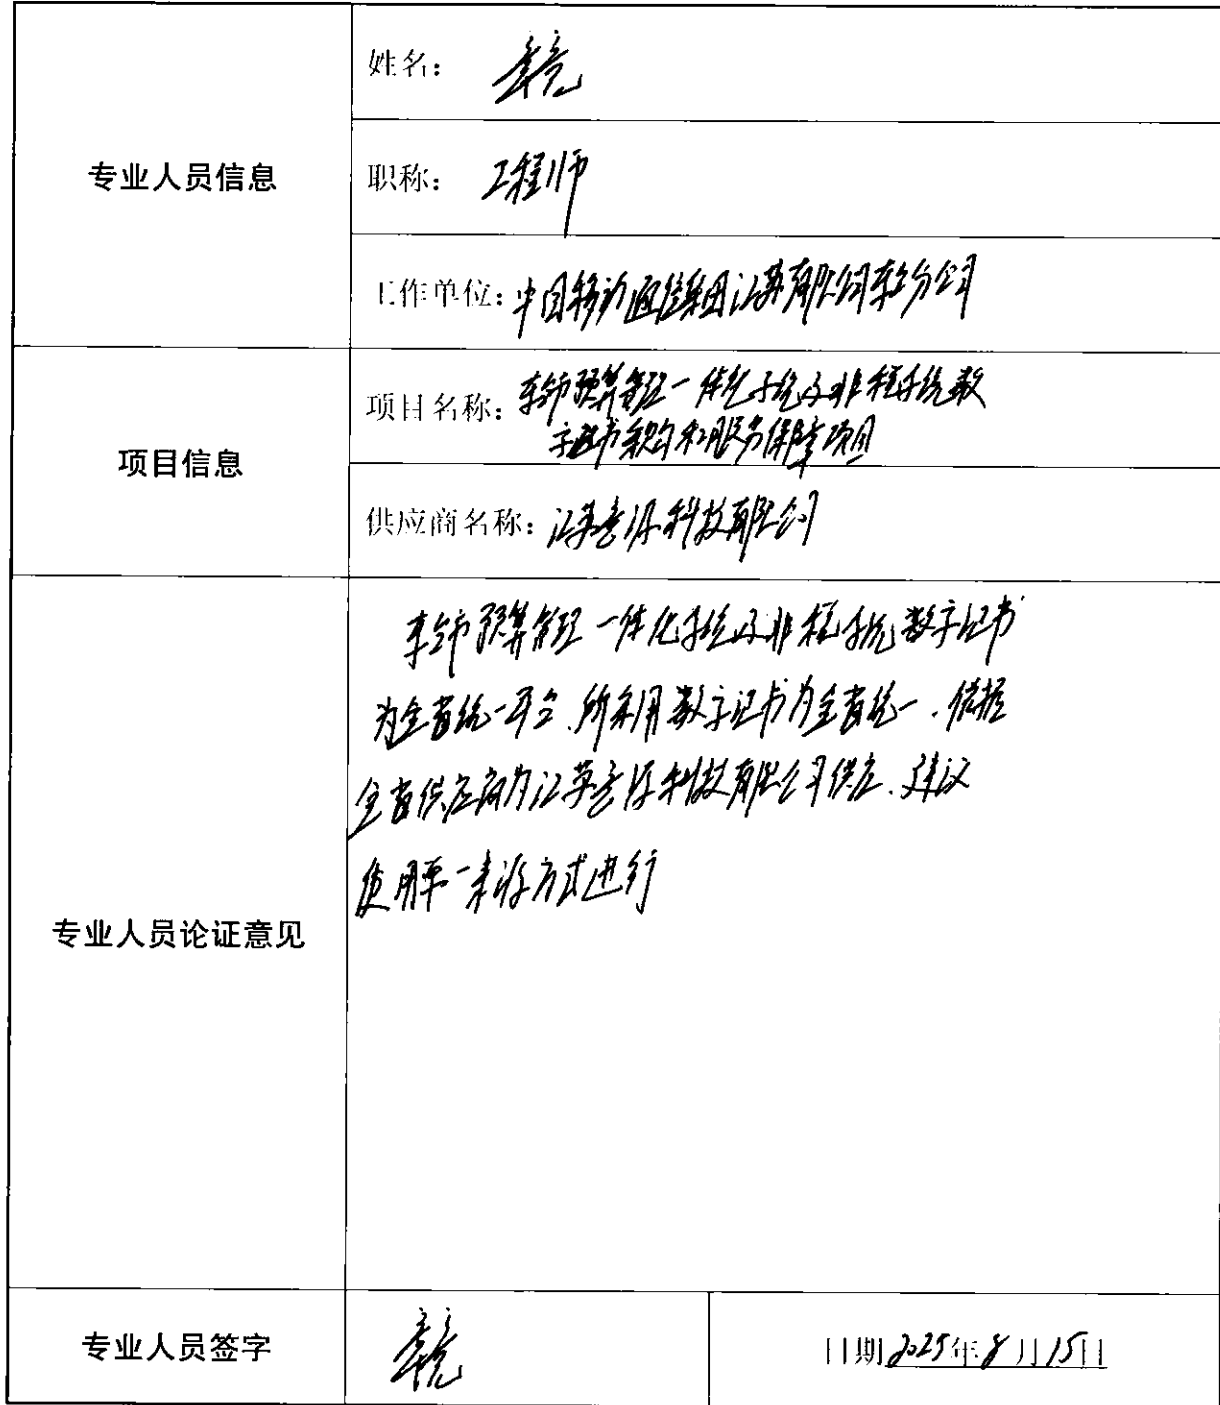 专业人员信息
姓名：
职称：工程师
工作单位：中国移动通信集团江苏有限公司东台分公司
项目信息
项目名称：东台市预算管理一体化系统及非税系统数
字证书采购和服务保障项目
供应商名称：江苏意源科技有限公司
专业人员论证意见
东台市预算管理一体化系统及非税系统数字证书
为全省统一平台，所采用数字证书为全省统一，依据
全省供应商为江苏意源科技有限公司供应，建议
使用单一来源方式进行
专业人员签字
日期2025年8月15日